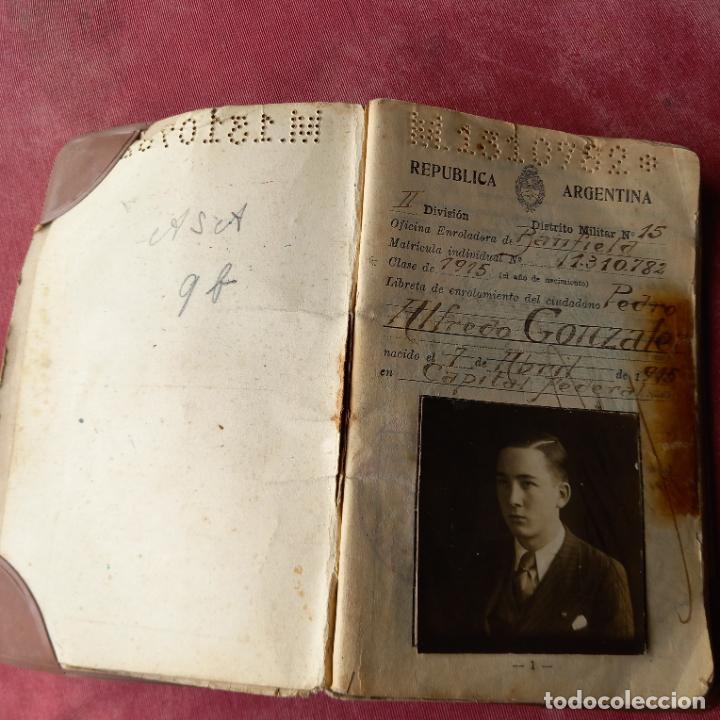 M1310782*
ASA
9 f
REPUBLICA ARGENTINA
II División Distrito Militar Nº 15
Oficina Enroladora de Banfield
Matrícula individual Nº 1.310.782
Clase de 1915 (el año de nacimiento)
Libreta de enrolamiento del ciudadano Pedro
Alfredo Gonzalez
nacido el 7 de Abril de 1915
en Capital Federal
— 1 —
todocoleccion.net